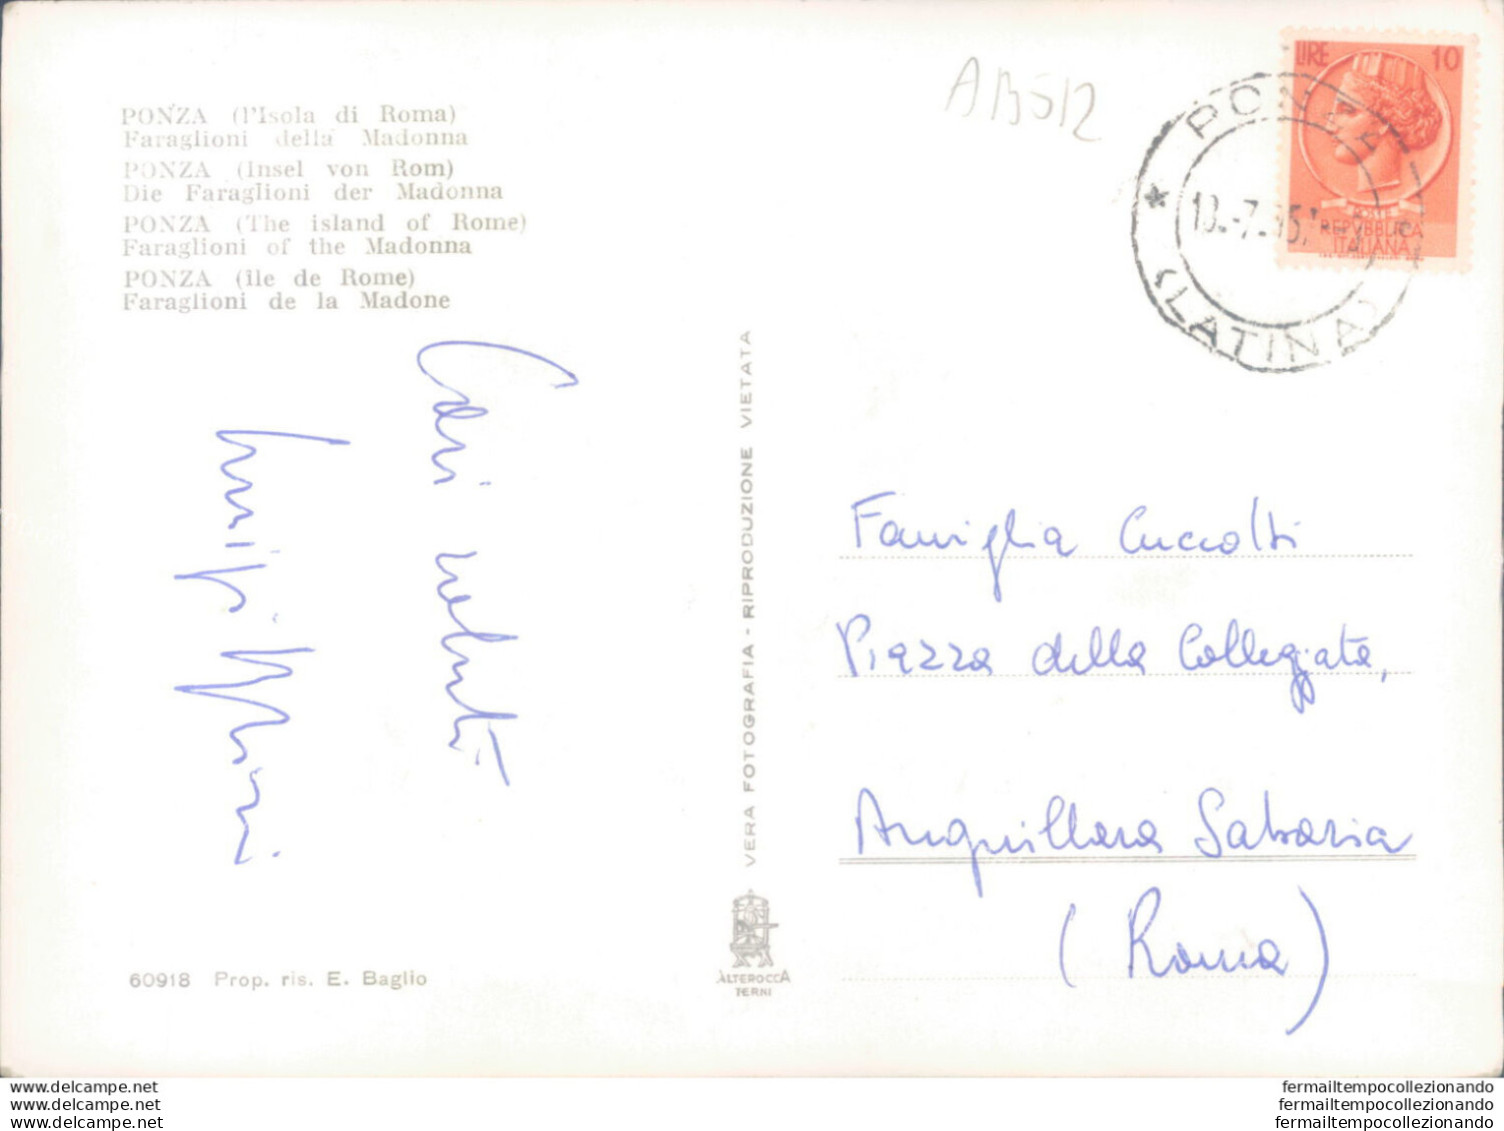 PONZA (l'Isola di Roma)
Faraglioni della Madonna
PONZA (Insel von Rom)
Die Faraglioni der Madonna
PONZA (The island of Rome)
Faraglioni of the Madonna
PONZA (île de Rome)
Faraglioni de la Madone
AB512
LIRE 10
REPVBBLICA
ITALIANA
PONZA
(LATINA)
Cari saluti
VERA FOTOGRAFIA - RIPRODUZIONE VIETATA
Famiglia
Piazza della Collegiata,
Anguillara Sabazia
(Roma)
60918 Prop. ris. E. Baglio
ALTEROCCA
TERNI
www.delcampe.net
www.delcampe.net
www.delcampe.net
fermailtempocollezionando
fermailtempocollezionando
fermailtempocollezionando